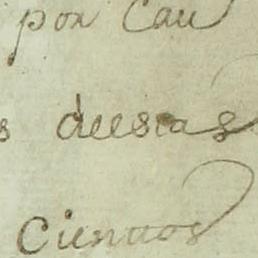 por Cau
s deesias
Cientos